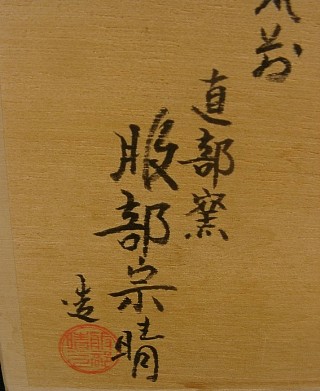 前
直部窯
服部宗晴
造